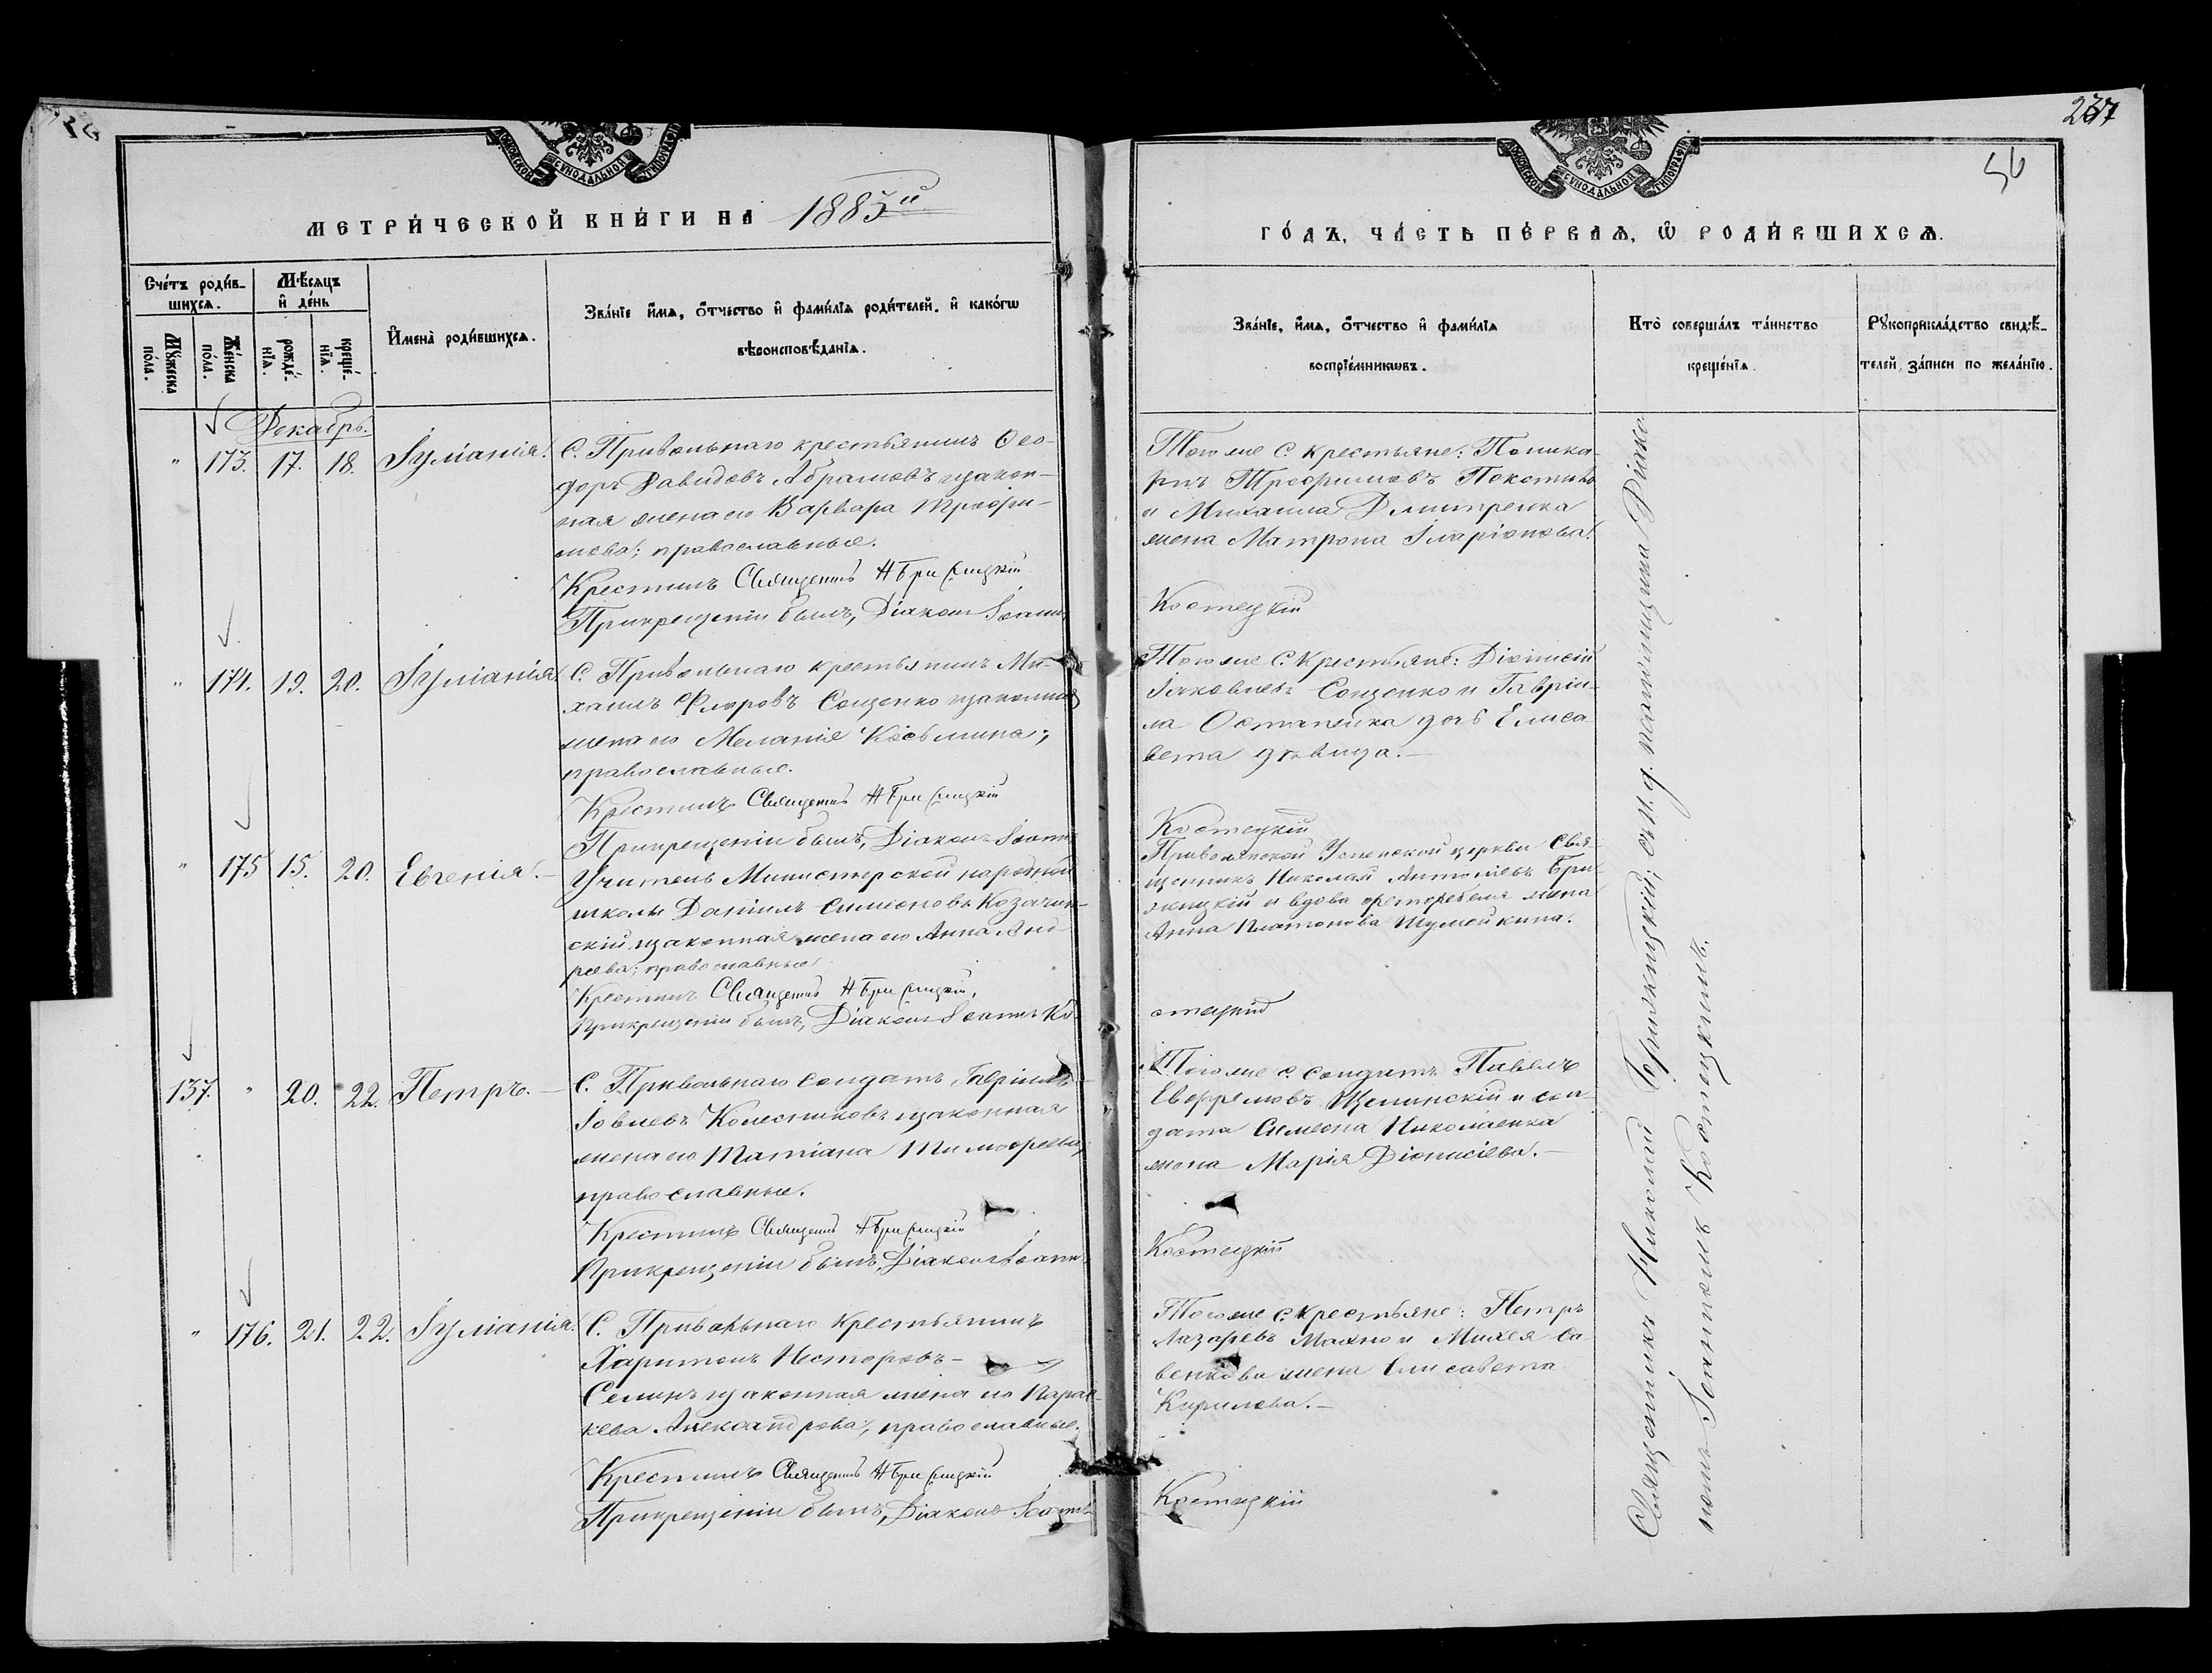 237
56
МОСКОВСКОЙ СѴНОДАЛЬНОЙ ТИПОГРАФІИ
МЕТРИ́ЧЕСКОЙ КНИ́ГИ НА 1885й
Сче́тъ роди́в-
шихсѧ.
Мꙋ́жеска по́ла.
Же́нска по́ла.
Мѣ́сѧцъ
и҆ де́нь
рожде́-
нїѧ.
креще́-
нїѧ.
И҆мена̀ роди́вшихсѧ.
Зва́нїе и҆́мѧ, ѻ҆́тчество и҆ фами́лїѧ роди́телей, и҆ како́гѡ
вѣроисповѣ́данїѧ.
Декабрь.
" 173. 17. 18. Іуліанія.
С. Привольнаго крестьянинъ Ѳео-
доръ Давидовъ Абрамовъ и закон-
ная жена его Варвара Трофи-
мова; православные.
Крестилъ Священникъ Н Брижицкій
При крещеніи былъ, Діаконъ Іоаннъ
" 174. 19. 20. Іуліанія.
С. Привольнаго крестьянинъ Ми-
хаилъ Флоровъ Сощенко и законная
жена его Меланія Косьмина;
православные.
Крестилъ Священникъ Н Брижицкій
При крещеніи былъ, Діаконъ Іоаннъ
" 175 15. 20. Евгенія.
Учитель Министерской народной
школы Даніилъ Симеоновъ Козачин-
скій и законная жена его Анна Анд-
реева; православные
Крестилъ Священникъ Н Брижицкій,
При крещеніи былъ, Діаконъ Іоаннъ Ко-
137. " 20. 22. Петръ.
С. Привольнаго солдатъ Гавріилъ
Іовлевъ Колесниковъ и законная
жена его Татіана Тимоѳеева,
православные.
Крестилъ Священникъ Н Брижицкій
При крещеніи былъ, Діаконъ Іоаннъ
" 176. 21. 22. Іуліанія.
С. Привольнаго крестьянинъ
Харитонъ Несторовъ-
Селинъ и законная жена его Парас-
кева Александрова, православные.
Крестилъ Священникъ Н Брижицкій
При крещеніи былъ, Діаконъ Іоаннъ
МОСКОВСКОЙ СѴНОДАЛЬНОЙ ТИПОГРАФІИ
ГО́ДЪ, ЧА́СТЬ ПЕ́РВАѦ, Ѡ҆ РОДИ́ВШИХСѦ.
Зва́нїе, и҆́мѧ, ѻ҆́тчество и҆ фами́лїѧ
воспрїе́мникѡвъ.
Кто̀ соверша́лъ та́инство
креще́нїѧ.
Рꙋкоприкла́дство свидѣ́-
телей за́писи по жела́нїю.
Того же с. крестьяне: Поликар-
рпъ Трофимовъ
и Михаила Дмитренка
жена Матрона Иларіонова.
Костецкій
Того же с. крестьяне: Діонисій
Іаковлевъ Сощенко и Гаврiи-
ла Остапенка дочь Елиса
вета дѣвица.
Костецкій
Привольнской Успенской церкви Свя-
щенникъ Николай Антоніевъ Бри-
жицкій и вдова жена
Анна Платонова Шумейкина.
стецкій
Того же с. солдатъ Павелъ
Евфремовъ Щепинскій и сол-
дата Симеона Николаенка
жена Марія Діонисіева.
Костецкій
Того же с. крестьяне: Петръ
Лазаревъ Махно и Михея Са-
венкова жена Елисавета
Кирилова.
Костецкій
Священникъ Николай Брижицкій; съ и. д. псаломщика Діако-
номъ Іоанномъ Костецкимъ.